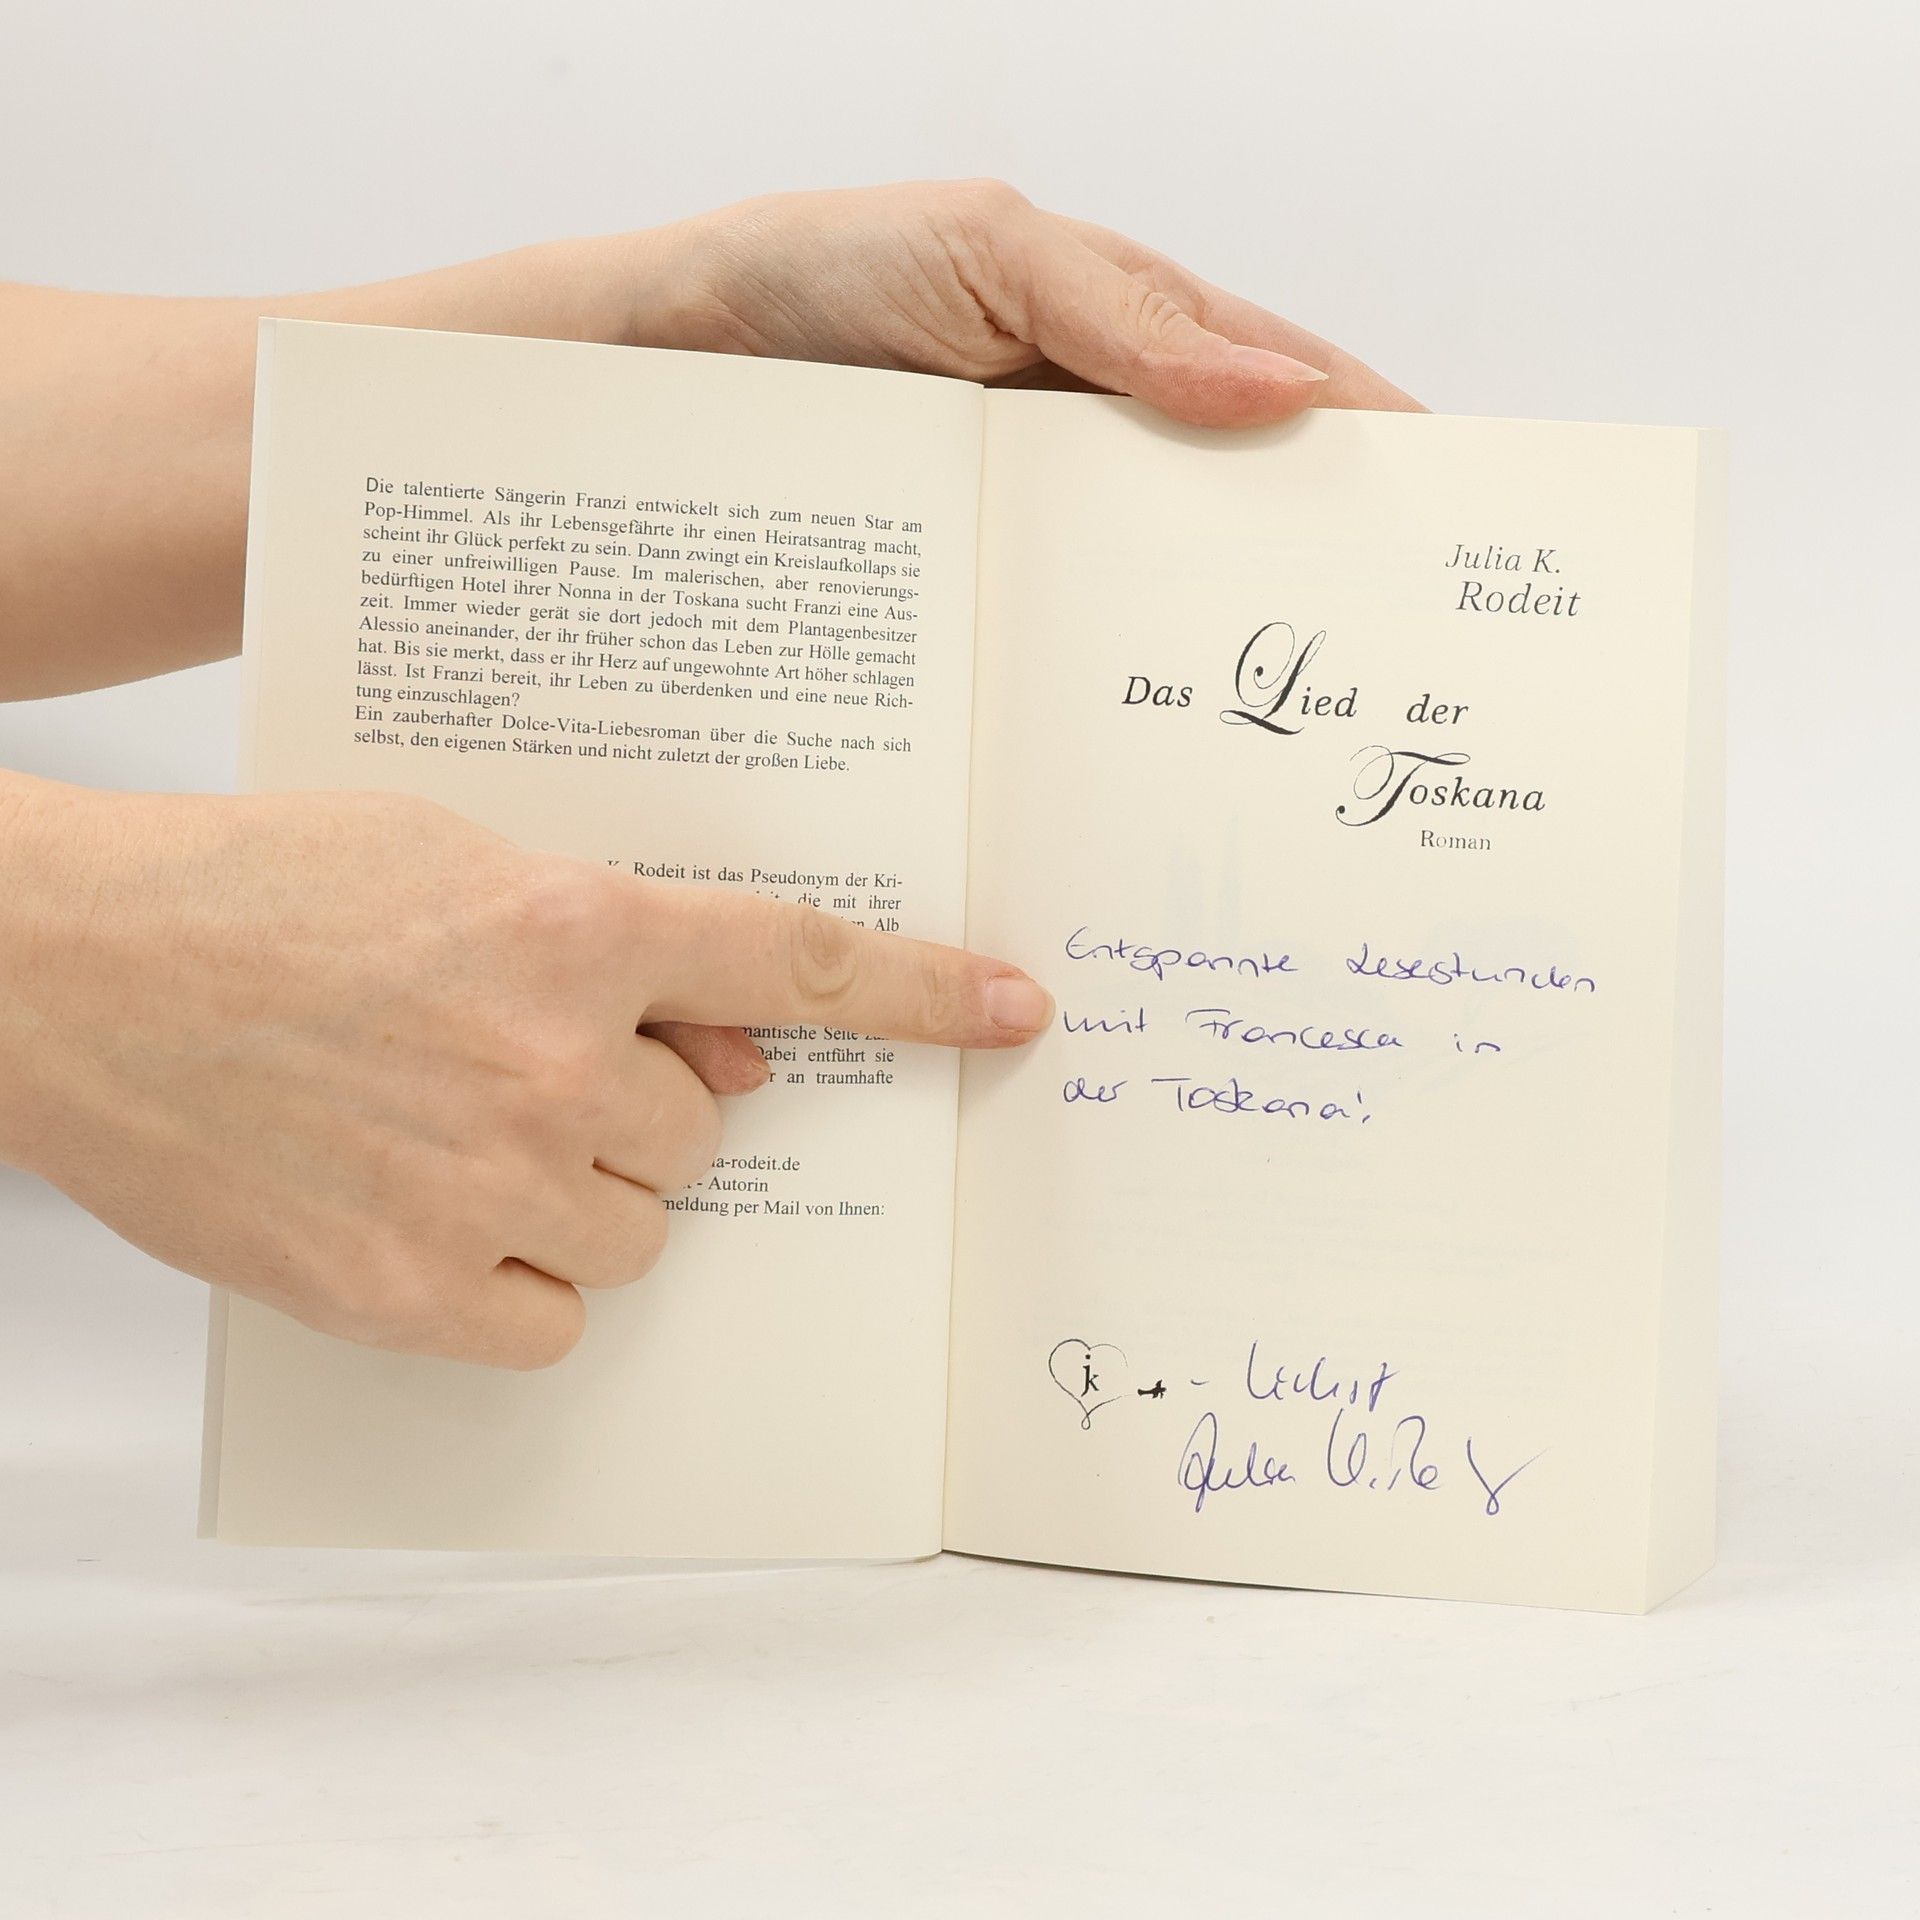 Die talentierte Sängerin Franzi entwickelt sich zum neuen Star am
Pop-Himmel. Als ihr Lebensgefährte ihr einen Heiratsantrag macht,
scheint ihr Glück perfekt zu sein. Dann zwingt ein Kreislaufkollaps sie
zu einer unfreiwilligen Pause. Im malerischen, aber renovierungs-
bedürftigen Hotel ihrer Nonna in der Toskana sucht Franzi eine Aus-
zeit. Immer wieder gerät sie dort jedoch mit dem Plantagenbesitzer
Alessio aneinander, der ihr früher schon das Leben zur Hölle gemacht
hat. Bis sie merkt, dass er ihr Herz auf ungewohnte Art höher schlagen
lässt. Ist Franzi bereit, ihr Leben zu überdenken und eine neue Rich-
tung einzuschlagen?
Ein zauberhafter Dolce-Vita-Liebesroman über die Suche nach sich
selbst, den eigenen Stärken und nicht zuletzt der großen Liebe.
K. Rodeit ist das Pseudonym der Kri-
die mit ihrer
Alb
mantische Seite
Dabei entführt sie
an traumhafte
ia-rodeit.de
- Autorin
meldung per Mail von Ihnen:
Julia K.
Rodeit
Das Lied der
Toskana
Roman
Entspannte Lesestunden
mit Francesca in
der Toskana!
jk
- lichst
Julia K. Rodeit